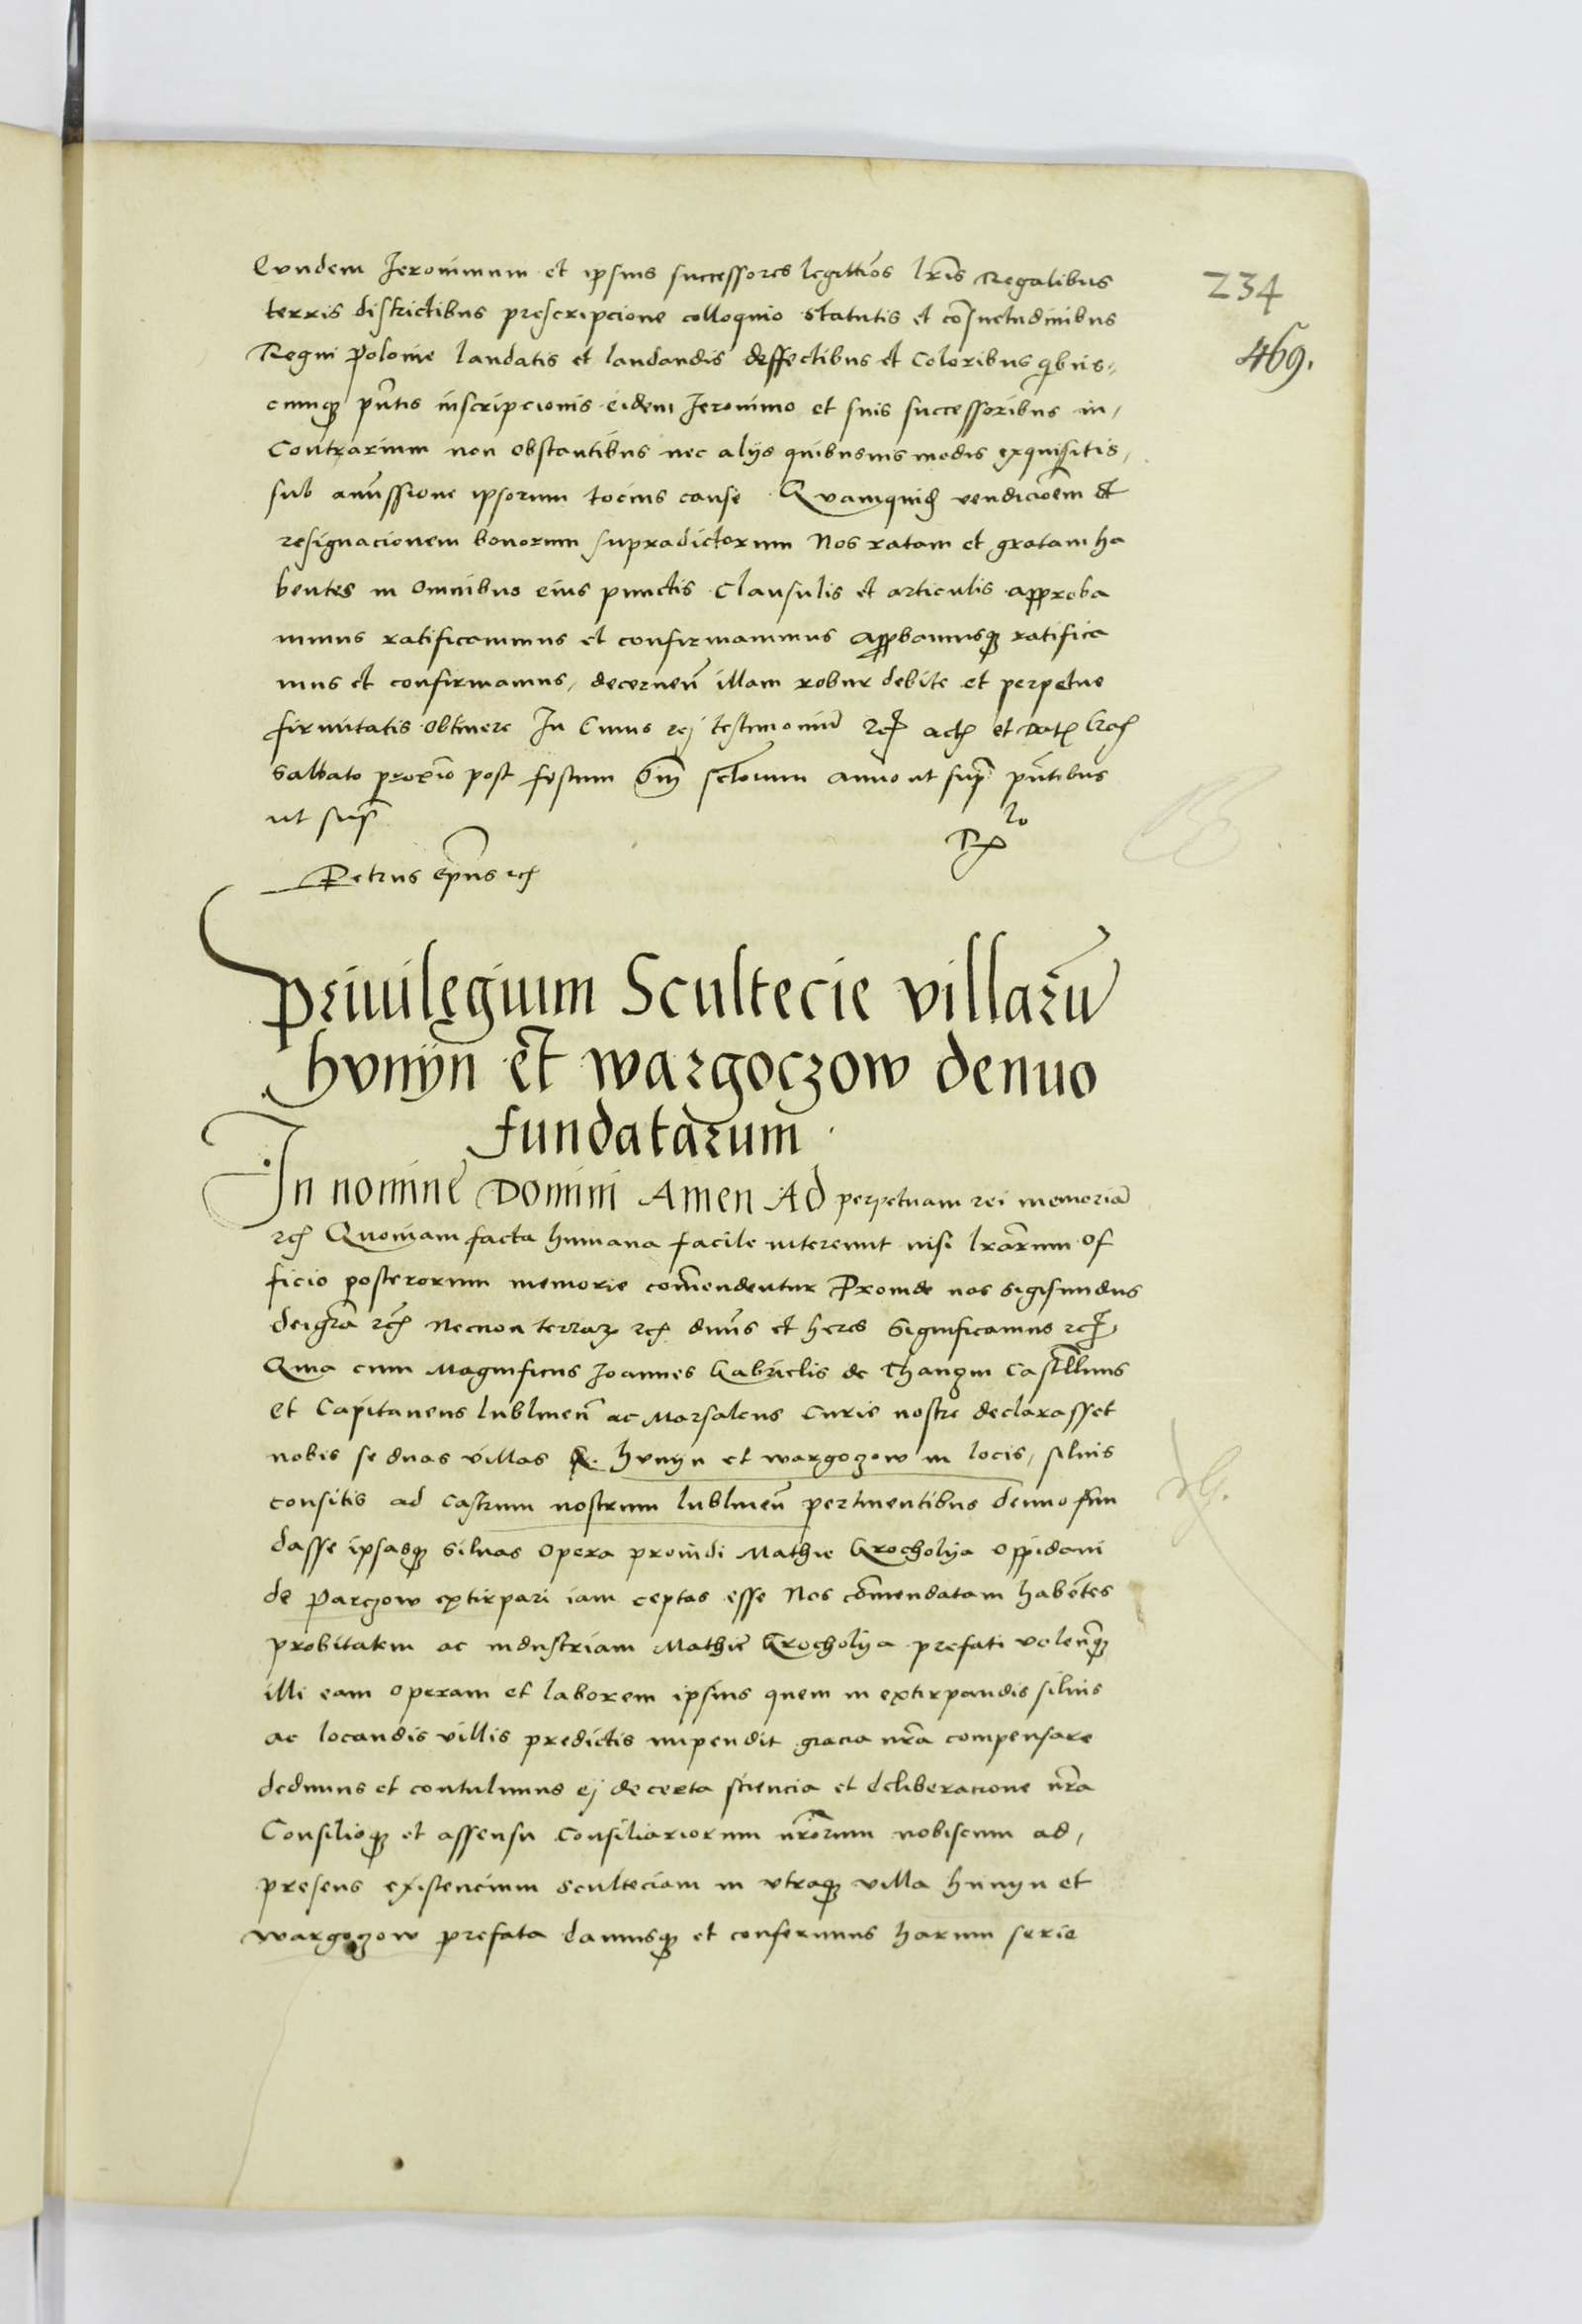 Eundem Jeronimum et ipsius successores legittīos lr̄is Regalibus
234
terris districtibus prescripcione colloquio statutis et cōsuetudinibus
Regni Polonie laudatis et laudandis deffectibus et Coloribus qbus=
469.
cunq pn̄tis inscripcionis eidem Jeronimo et suis successoribus in,
Contrarium non obstantibus nec alijs quibusuis modis exquisitis,
sub amissione ipsorum tocius cause Quamquid vendicōem et
resignacionem bonorum supradictorum Nos ratam et gratam ha
bentes in omnibus eius punctis Clausulis et articulis approba
uimus ratificauimus et confirmauimus appbamusq ratifica
mus et confirmamus, decernen̄ illam robur debite et perpetue
firmitatis obtinere In Cuius rej testimoniū rc̄ act et Dat Crac
Sabbato proxīo post festum Om̄ sctorum anno ut sup̄ pn̄tibus
ut sup̄
Petrus ep̄us rc̄
Priuilęgium Scultecie villarū
hvnÿn et wargoczow denuo
fundatarum
In nomine Domini Amen Ad perpetuam rei memoriā
rc̄ Quoniam facta humana facile intereunt nisi lr̄arum of
ficio posterorum memorie com̄endentur Proinde nos Sigismundus
dei gr̄a rc̄ Necnon terrar rc̄ dn̄us et heres Significamus rc̄
Quia cum Magnificus Joannes Gabrielis de Thanczin Castell̄nus
et Capitaneus lublinen̄ ac Marsalcus Curie nostre declarasset
nobis se duas villas hvnÿn et wargoczow in locis, siluis
consitis ad Castrum nostrum lublinen̄ pertinentibus denuo fun
dasse ipsasq siluas opera prouidi Mathie Grocholÿa oppidani
de Parczow extirpari iam ceptas esse Nos com̄endatam habētes
probitatem ac industriam Mathie Grocholÿa prefati volen̄q
illi eam operam et laborem ipsius quem in extirpandis siluis
ac locandis villis predictis impendit gracia nr̄a compensare
dedimus et contulimus ej de certa sciencia et deliberacione nr̄a
Consilioq et assensu Consiliariorum nr̄orum nobiscum ad,
presens existencium sculteciam in vtraq villa hunÿn et
wargoczow prefata damusq et conferimus harum serie